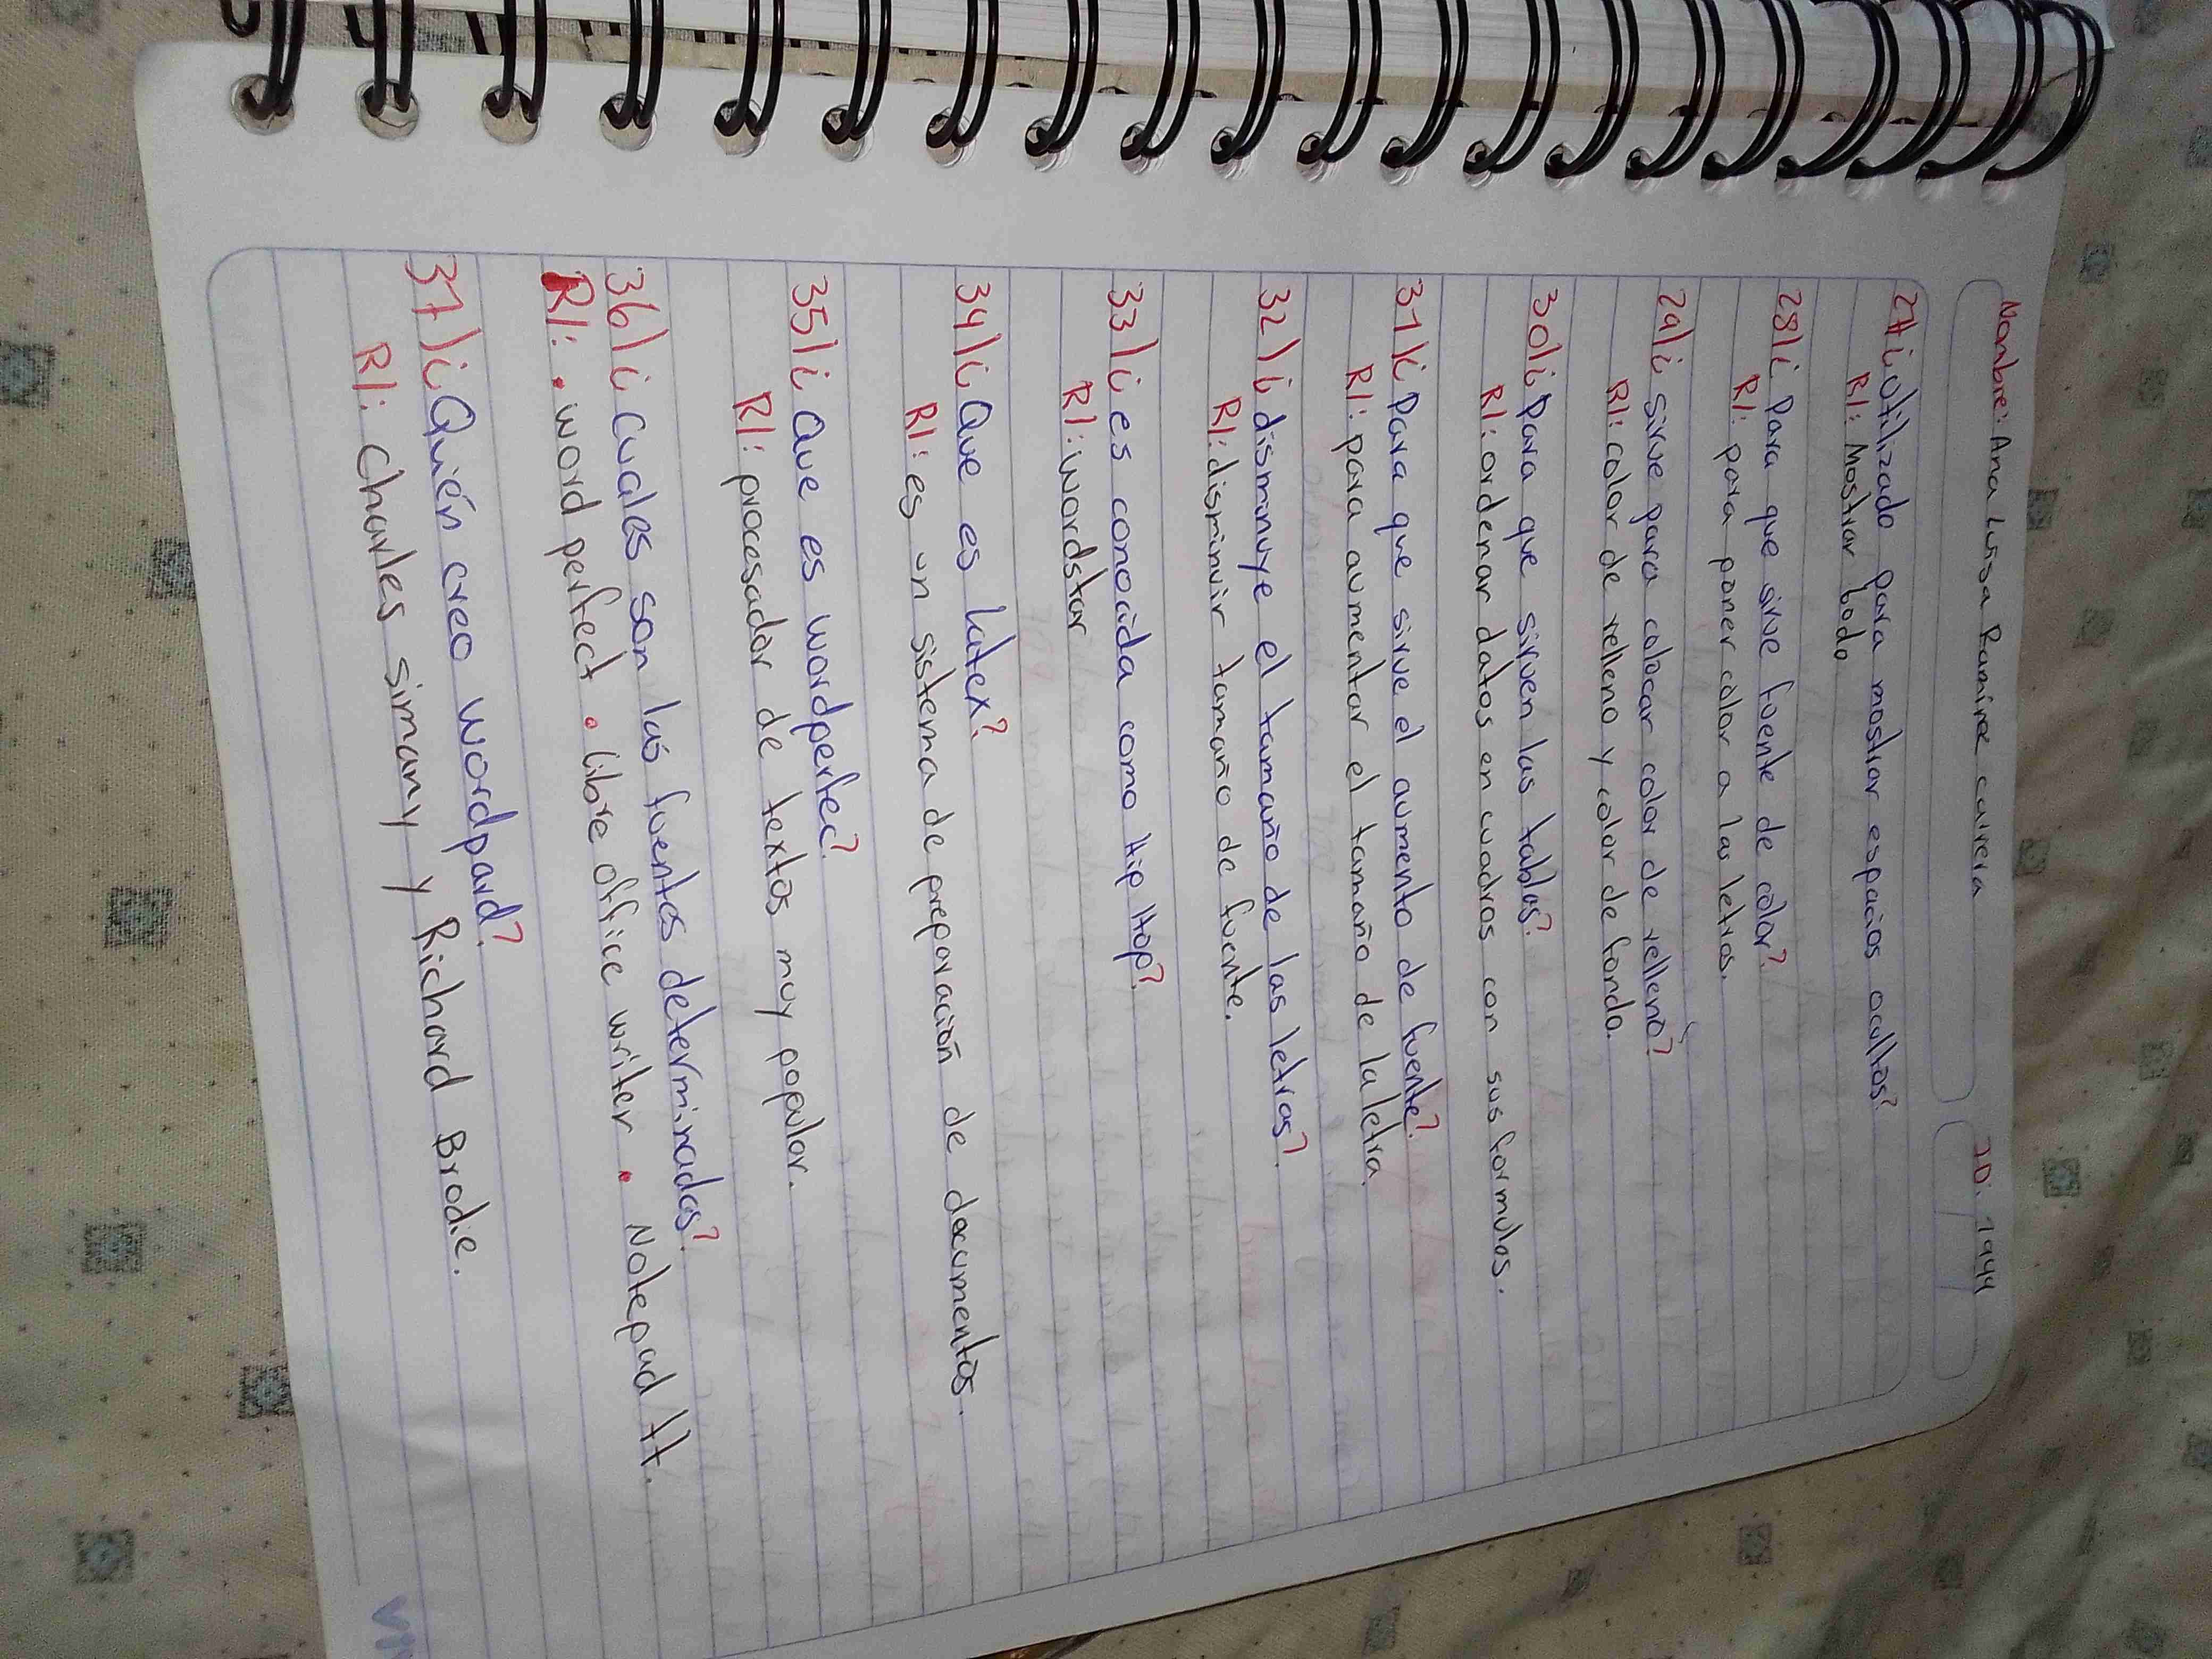 Nombre: Ana Luisa Ramírez cutrera 20: 1944
27 ¿Utilizado para mostrar espacios ocultos?
R/: Mostrar todo
28/¿Para que sirve fuente de color?
R/: para poner color a las letras.
29/¿sirve para colocar color de relleno?
R/: color de relleno y color de fondo.
30/¿Para que sirven las tablas?
R/: ordenar datos en cuadros con sus formulas.
31/¿Para que sirve el aumento de fuente?
R/: para aumentar el tamaño de la letra.
32/¿disminuye el tamaño de las letras?
R/: disminuir tamaño de fuente.
33/¿es conocida como Hip Hop?
R/: wordstar
34/¿Que es latex?
R/: es un sistema de preparación de documentos.
35/¿Que es wordperfec?
R/: procesador de textos muy popular.
36/¿Cuales son las fuentes determinadas?
R/: . word perfect . libre office writer . Notepad ++.
37/¿Quién creo wordpard?
R/: Charles simany y Richard Brodie.